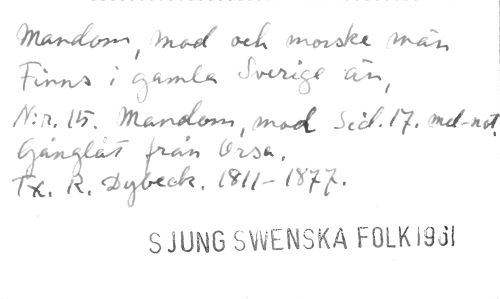 Mandom, mod och morske män
Finns i gamla Sverige än,
N:r. 15. Mandom, mod Sid. 17. mel-not.
Gånglåt från Orsa.
Tx. R. Dybeck. 1811-1877.
SJUNG SWENSKA FOLK 1961